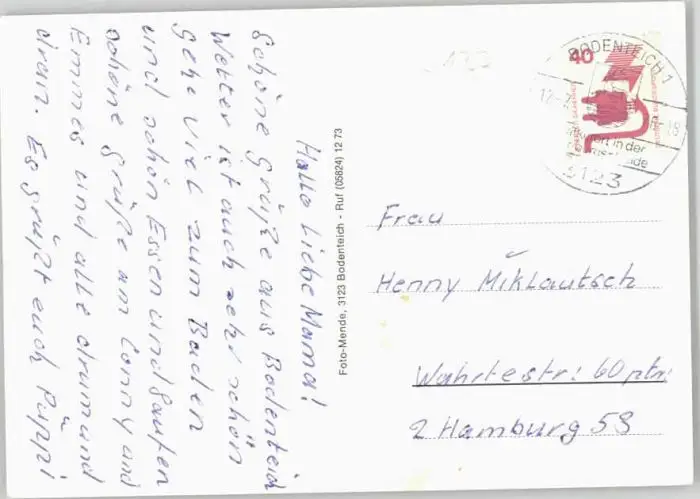 Hallo Liebe Mama!
Schöne Grüße aus Bodenteich
Wetter ist auch sehr schön
gehe viel zum Baden
und schön Essen und
schöne grüße an Conny und
Emmes und alle drum und
dran. Es grüßt euch Püppi
Foto-Mende, 3123 Bodenteich - Ruf (05824) 12 73
BODENTEICH 1
40
in der
3123
Frau
Henny Miklautsch
60 ptr.
2 Hamburg 53